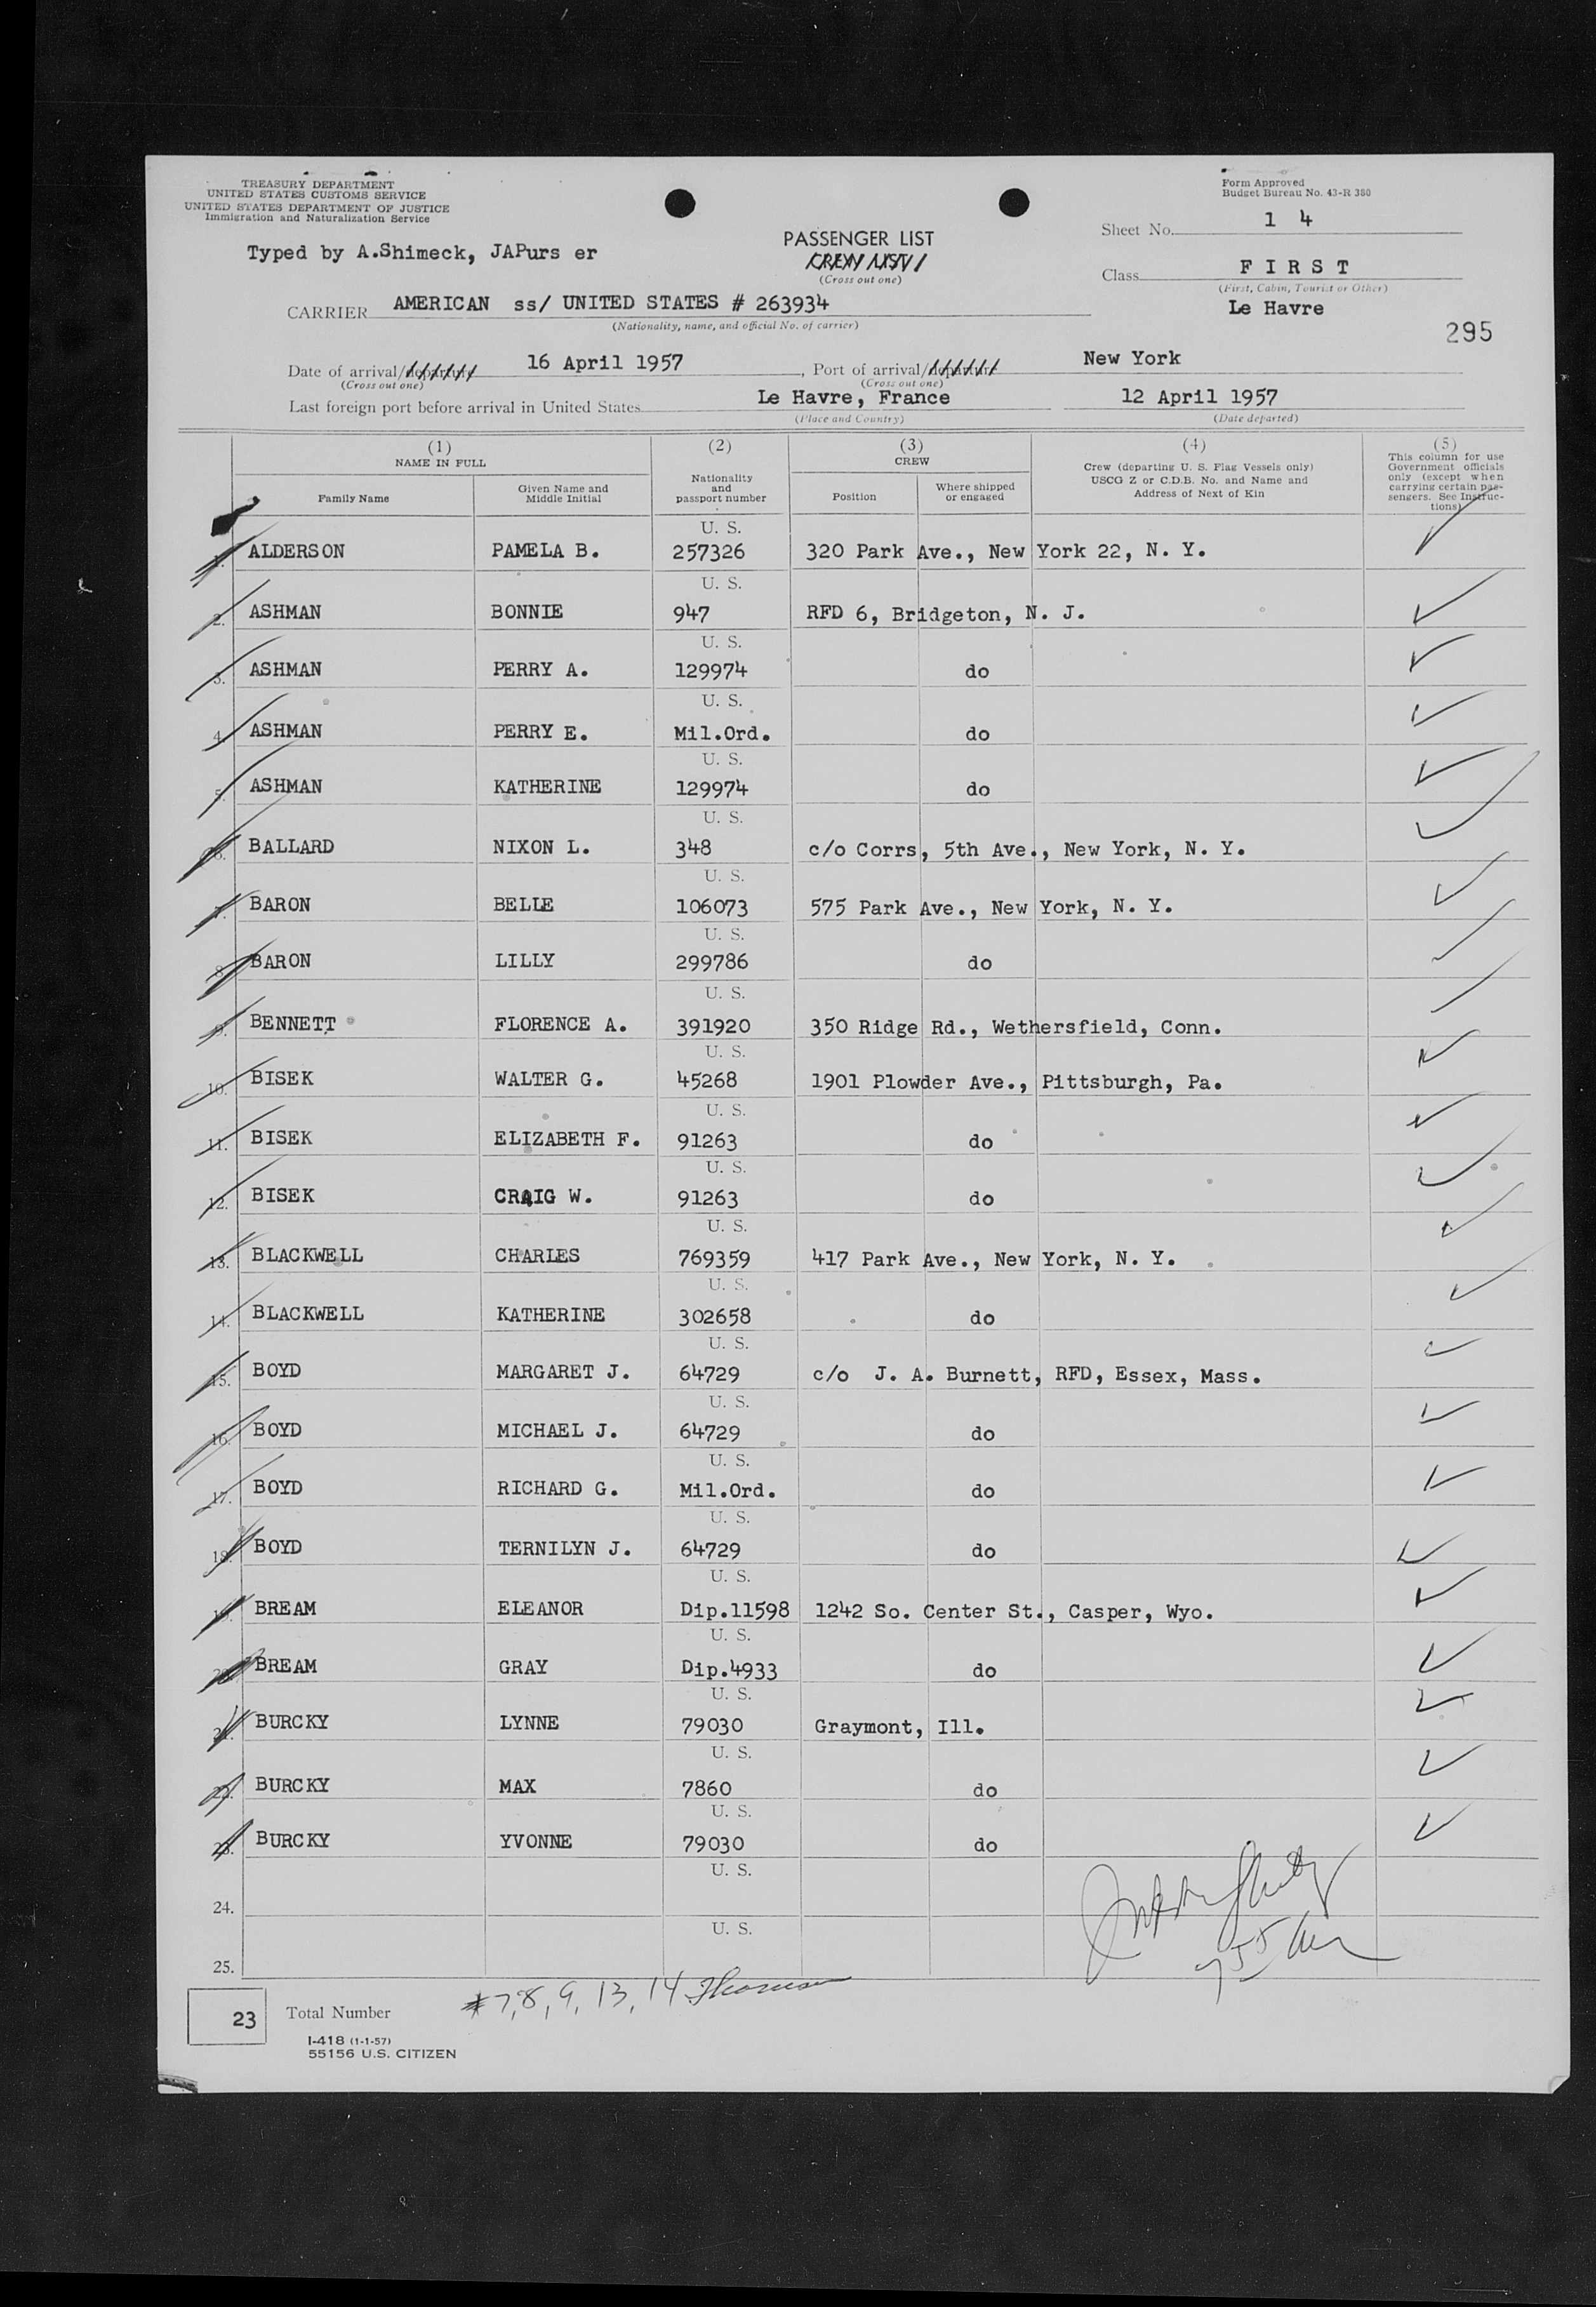 TREASURY DEPARTMENT
UNITED STATES CUSTOMS SERVICE
UNITED STATES DEPARTMENT OF JUSTICE
Immigration and Naturalization Service
Form Approved
Budget Bureau No. 43-R 380
Typed by A.Shimeck, JAPurs er
PASSENGER LIST
CREW LIST
(Cross out one)
Sheet No. 1 4
Class F I R S T
(First, Cabin, Tourist or Other)
Le Havre
CARRIER AMERICAN ss/ UNITED STATES # 263934
(Nationality, name, and official No. of carrier)
295
Date of arrival/departure 16 April 1957, Port of arrival/departure New York
(Cross out one) (Cross out one)
Last foreign port before arrival in United States Le Havre, France 12 April 1957
(Place and Country) (Date departed)
(1) (2) (3) (4) (5)
NAME IN FULL
Family Name
Given Name and Middle Initial
Nationality and passport number
CREW
Position
Where shipped or engaged
Crew (departing U. S. Flag Vessels only) USCG Z or C.D.B. No. and Name and Address of Next of Kin
This column for use Government officials only (except when carrying certain passengers. See Instructions)
U. S.
1. ALDERSON PAMELA B. 257326 320 Park Ave., New York 22, N. Y.
U. S.
2. ASHMAN BONNIE 947 RFD 6, Bridgeton, N. J.
U. S.
3. ASHMAN PERRY A. 129974 do
U. S.
4. ASHMAN PERRY E. Mil.Ord. do
U. S.
5. ASHMAN KATHERINE 129974 do
U. S.
6. BALLARD NIXON L. 348 c/o Corrs, 5th Ave., New York, N. Y.
U. S.
7. BARON BELLE 106073 575 Park Ave., New York, N. Y.
U. S.
8. BARON LILLY 299786 do
U. S.
9. BENNETT FLORENCE A. 391920 350 Ridge Rd., Wethersfield, Conn.
U. S.
10. BISEK WALTER G. 45268 1901 Plowder Ave., Pittsburgh, Pa.
U. S.
11. BISEK ELIZABETH F. 91263 do
U. S.
12. BISEK CRAIG W. 91263 do
U. S.
13. BLACKWELL CHARLES 769359 417 Park Ave., New York, N. Y.
U. S.
14. BLACKWELL KATHERINE 302658 do
U. S.
15. BOYD MARGARET J. 64729 c/o J. A. Burnett, RFD, Essex, Mass.
U. S.
16. BOYD MICHAEL J. 64729 do
U. S.
17. BOYD RICHARD G. Mil.Ord. do
U. S.
18. BOYD TERNILYN J. 64729 do
U. S.
19. BREAM ELEANOR Dip.11598 1242 So. Center St., Casper, Wyo.
U. S.
20. BREAM GRAY Dip.4933 do
U. S.
21. BURCKY LYNNE 79030 Graymont, Ill.
U. S.
22. BURCKY MAX 7860 do
U. S.
23. BURCKY YVONNE 79030 do
U. S.
24.
U. S.
25.
#7, 8, 9, 13, 14
23 Total Number
I-418 (1-1-57)
55156 U.S. CITIZEN